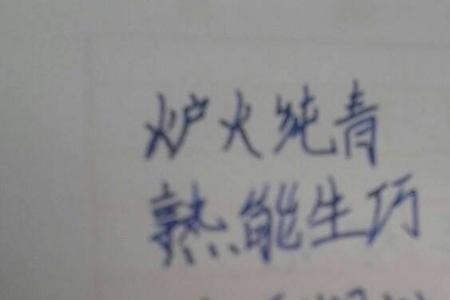 炉火纯青
熟能生巧